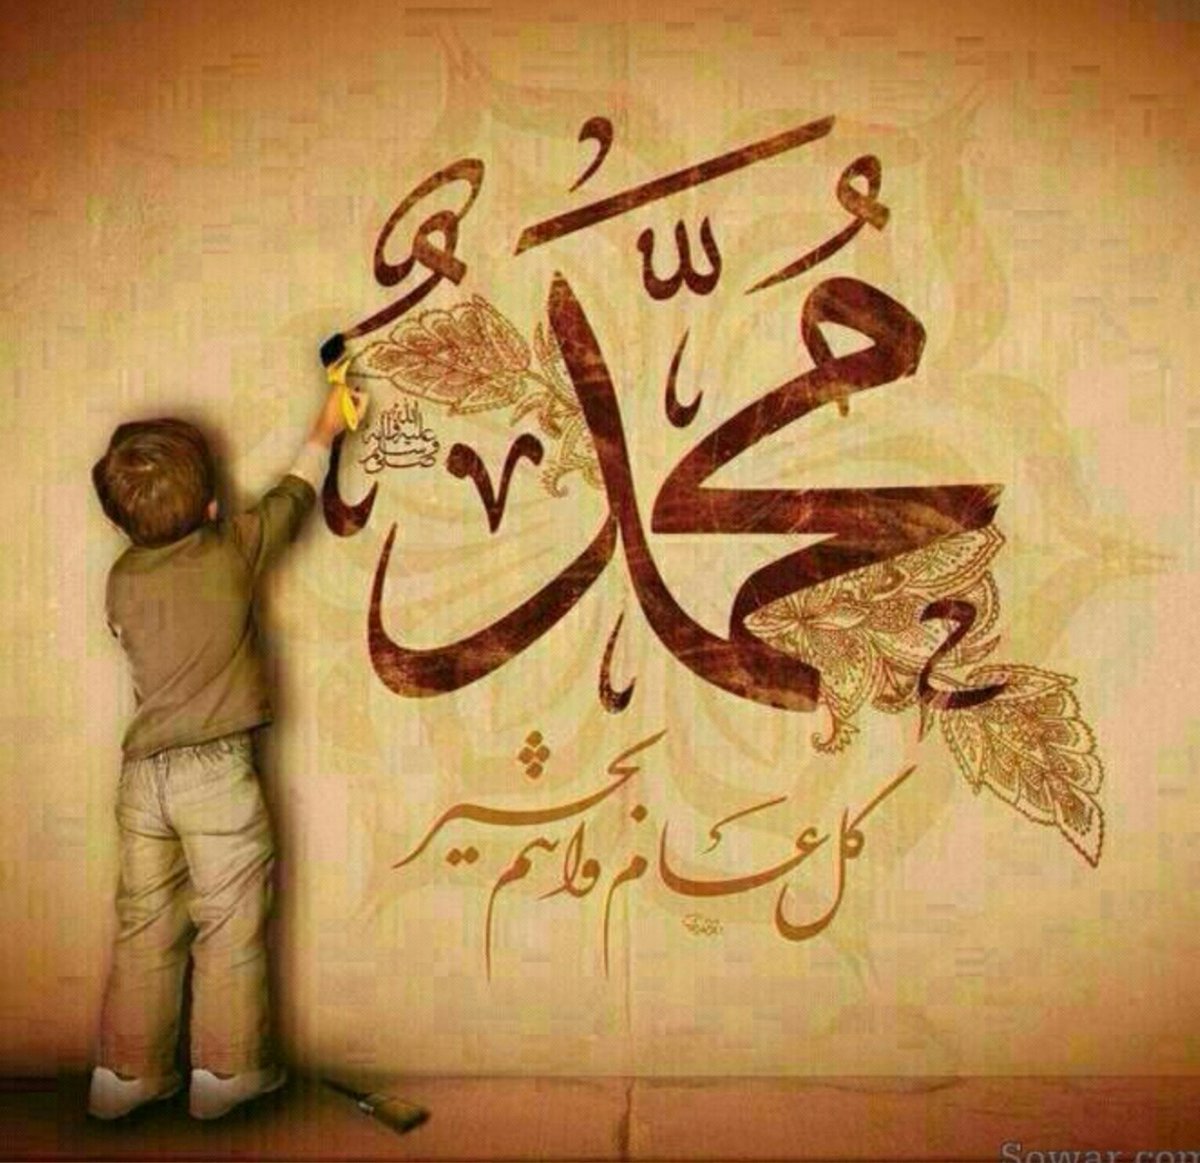 محمد
صلى الله عليه وآله وسلم
كل عام وانتم بخير
Sowar.com